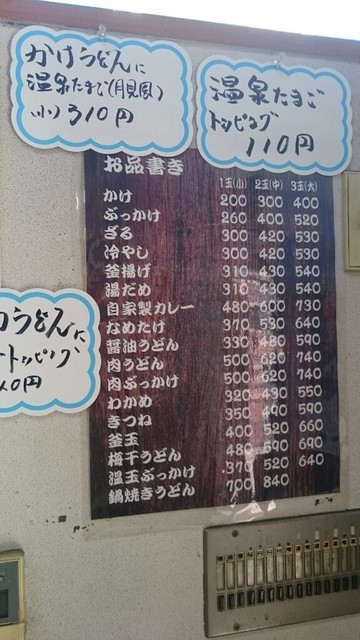 かけうどんに
温泉たまご(月見風)
(小) 310円
温泉たまご
トッピング
110円
お品書き
1玉(小) 2玉(中) 3玉(大)
かけ 200 300 400
ぶっかけ 260 400 520
ざる 300 420 530
冷やし 300 420 530
釜揚げ 310 430 540
湯だめ 310 430 540
自家製カレー 480 600 730
なめたけ 370 530 640
醤油うどん 330 480 590
肉うどん 500 620 740
肉ぶっかけ 500 620 740
わかめ 320 430 550
きつね 350 490 590
釜玉 400 520 660
梅干うどん 480 590 690
温玉ぶっかけ 370 520 640
鍋焼きうどん 700 840
うどんに
トッピング
0円